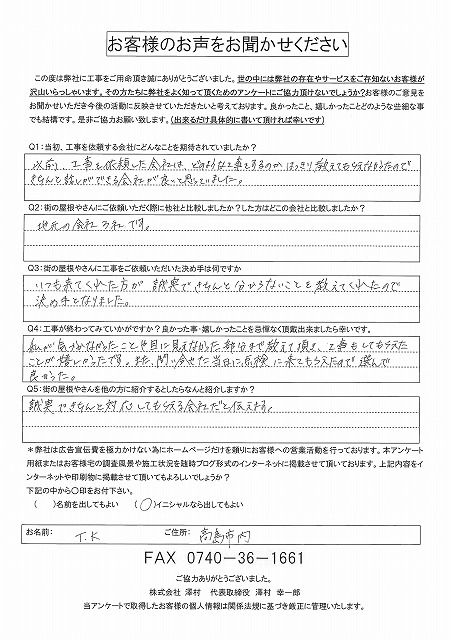 お客様のお声をお聞かせください
この度は弊社に工事をご用命頂き誠にありがとうございました。世の中には弊社の存在やサービスをご存知ないお客様が
沢山いらっしゃいます。その方たちに弊社をよく知って頂くためのアンケートにご協力頂けないでしょうか?お客様のご意見
をお聞かせいただき今後の活動に反映させていただきたいと考えております。良かったこと、嬉しかったことどのような些細な事
でも結構です。是非ご協力お願い致します。(出来るだけ具体的に書いて頂ければ幸いです)
Q1:当初、工事を依頼する会社にどんなことを期待されていましたか?
以前、工事を依頼した会社は、どのような工事をするのか、はっきり教えてもらえなかったので
きちんと話しができる会社が良いと思っていました。
Q2:街の屋根やさんにご依頼いただく際に他社と比較しましたか?した方はどこの会社と比較しましたか?
地元の会社3社です。
Q3:街の屋根やさんに工事をご依頼いただいた決め手は何ですか
いつも来てくれた方が誠実できちんと分からないことを教えてくれたので
決め手となりました。
Q4:工事が終わってみていかがですか?良かった事・嬉しかったことを忌憚なく頂戴出来ましたら幸いです。
私が気づかなかったことや目に見えなかった部分まで教えて頂き、工事もしてもらえた
ことが嬉しかったです。また、問い合せた当日に点検に来てもらえたので選んで
良かった。
Q5:街の屋根やさんを他の方に紹介するとしたらなんと紹介しますか?
誠実できちんと対応してもらえる会社だと伝えます。
*弊社は広告宣伝費を極力かけない為にホームページだけを頼りにお客様への営業活動を行っております。本アンケート
用紙またはお客様宅の調査風景や施工状況を随時ブログ形式のインターネットに掲載させて頂いております。上記内容をイ
ンターネットや印刷物に掲載させて頂いてもよろしいでしょうか?
下記の中から〇印をお付下さい。
( )名前を出してもよい (〇)イニシャルなら出してもよい
お名前: T.K ご住所: 高島市内
FAX 0740-36-1661
ご協力ありがとうございました。
株式会社 澤村 代表取締役 澤村 幸一郎
当アンケートで取得したお客様の個人情報は関係法規に基づき厳正に管理いたします。